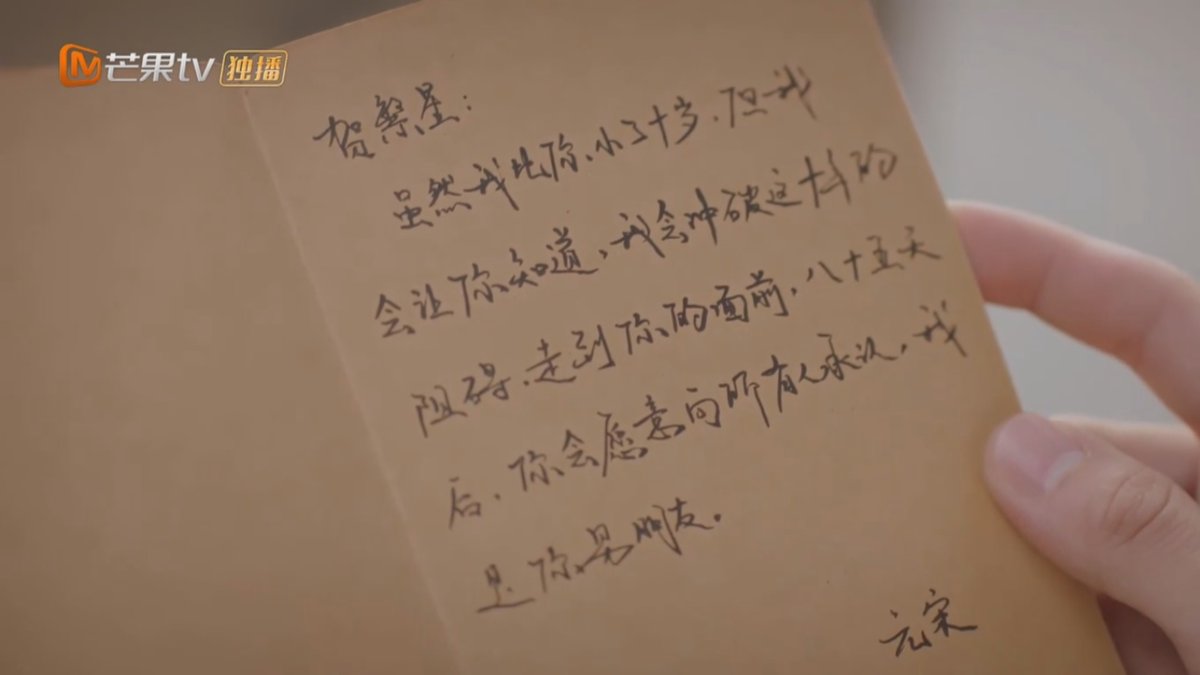 芒果tv 独播
贺繁星：
虽然我比你小了十岁，但我
会让你知道，我会冲破这样的
阻碍，走到你的面前，八十五天
后，你会愿意向所有人承认，我
是你男朋友。
元宋